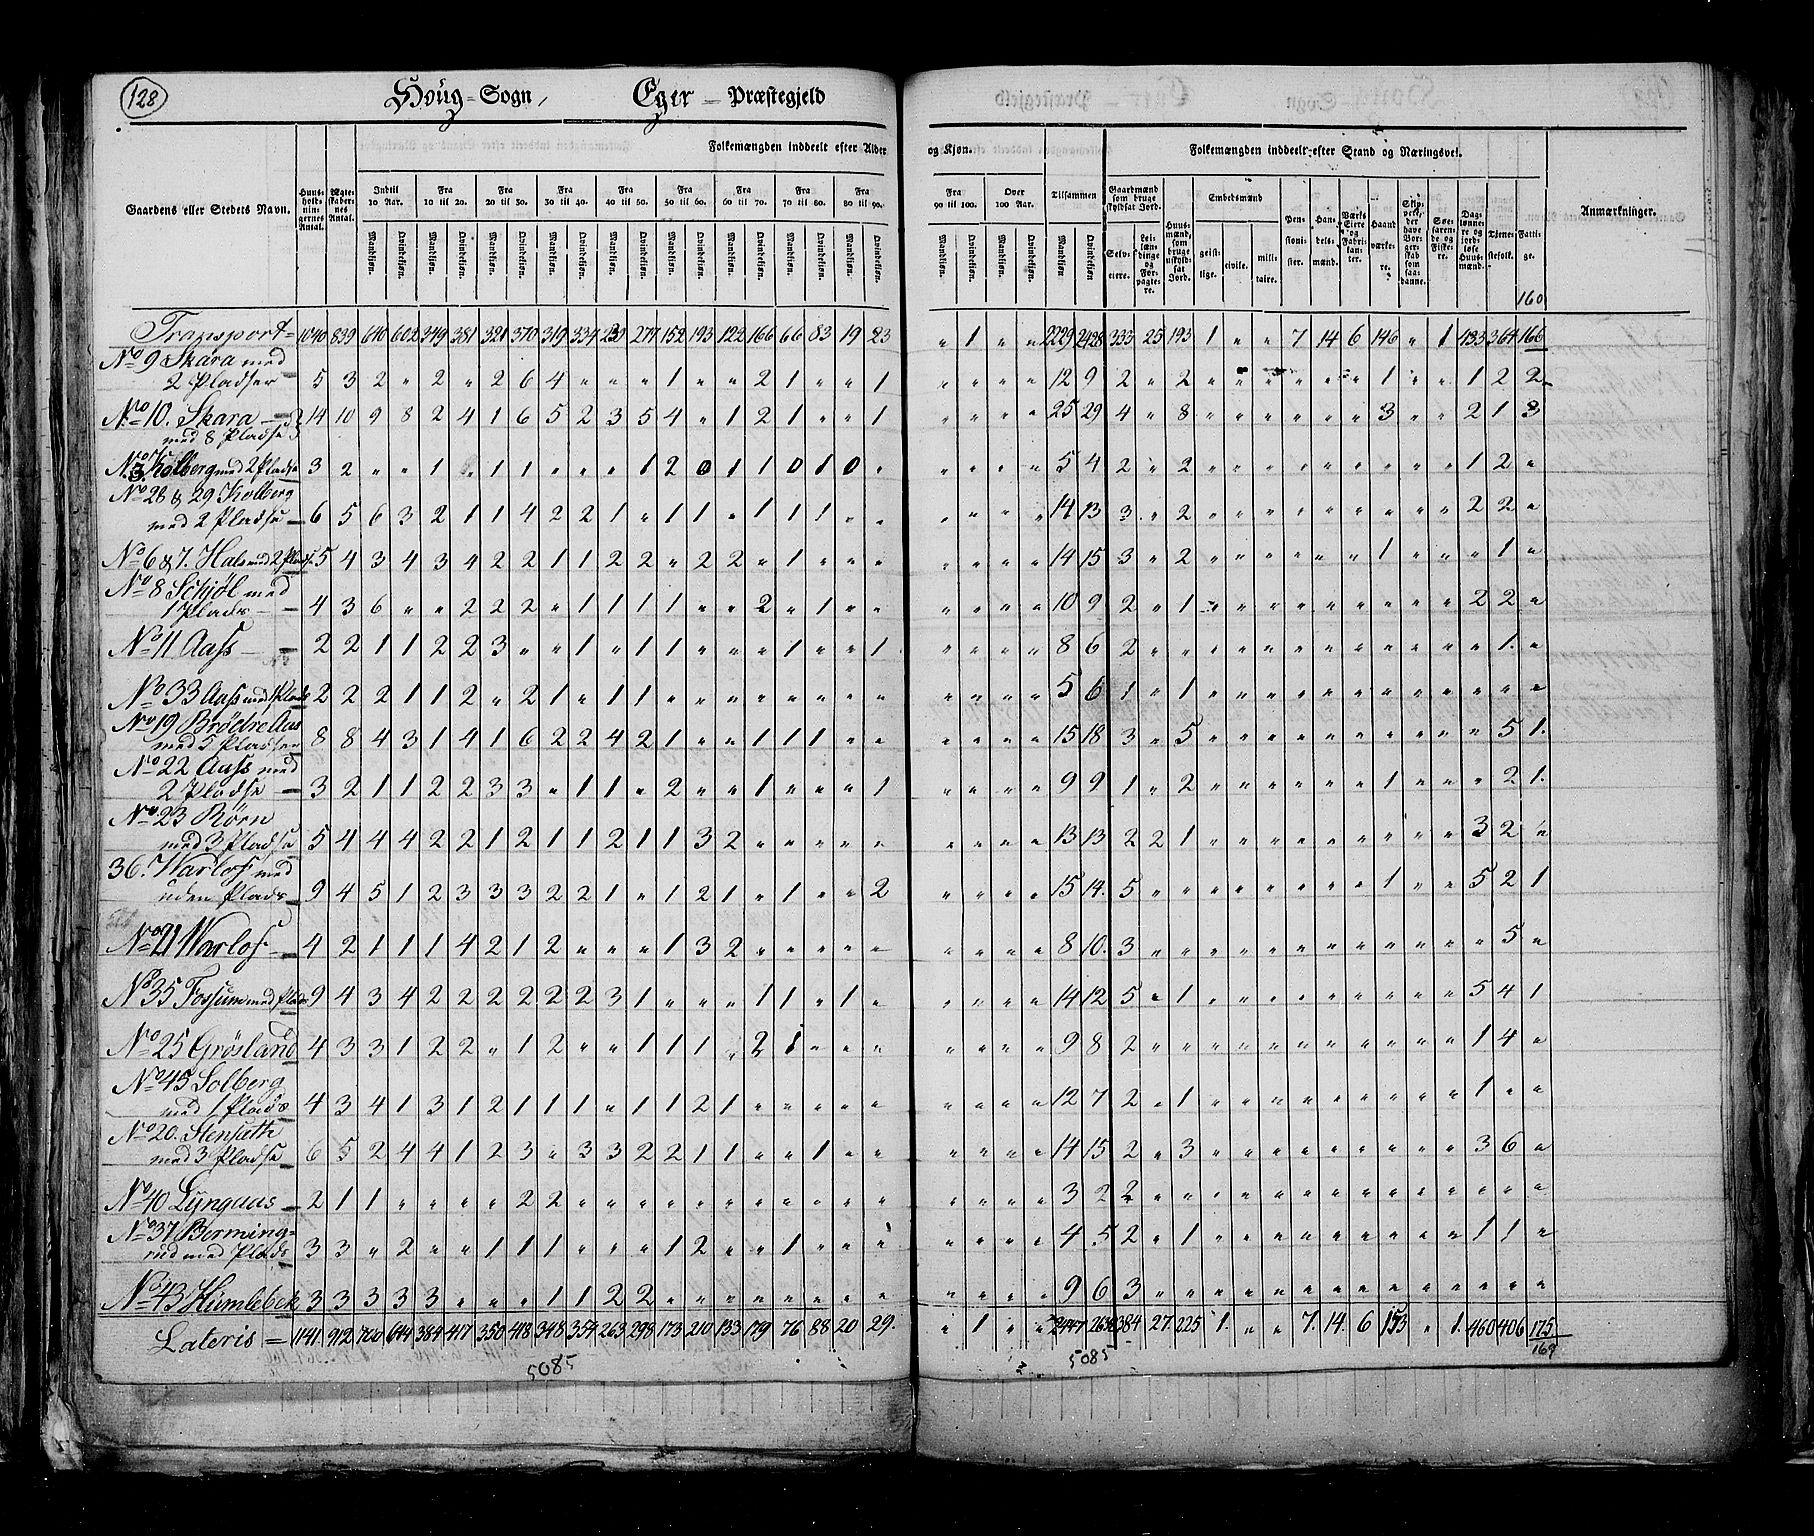 128
Houg-Sogn, Eger-Præstegjeld
Gaardens eller Stedets Navn. Huusholdningernes Antal. Ægteskabernes Antal. Folkemængden inddeelt efter Alder og Kjøn. Tilsammen Folkemængden inddeelt efter Stand og Næringsvei. Anmærkninger.
Indtil 10 Aar. Fra 10 til 20. Fra 20 til 30. Fra 30 til 40. Fra 40 til 50. Fra 50 til 60. Fra 60 til 70. Fra 70 til 80. Fra 80 til 90. Fra 90 til 100. Over 100 Aar.
Mandkjøn. Qvindekjøn.
Gaardmænd som bruge skyldsat Jord. Selveiere. Leilændinge og Forpagtere. Huusmænd, som bruge uskyldsat Jord. Embedsmænd geistlige. civile. militaire. Pensionister. Handelsmænd. Værks Eiere og Fabrikanter. Haandværkere. Skippere, der have Borgerskab som saadanne. Søefarende og Fiskere. Daglønnere og jordløse Huusmænd. Tjenestefolk. Fattige.
160
Transport 1040 839 640 602 349 381 321 370 319 334 230 277 152 193 122 166 66 83 19 23 " 1 " " 2229 2428 333 25 193 1 " " 7 14 6 146 " 1 433 364 166
No 9 Skara med
2 Pladser 5 3 2 " 2 " 2 6 4 " " " 1 " " 2 1 " " 1 " " " " 12 9 2 " 2 " " " " " " 1 " " 1 2 2
No 10. Skara
med 8 Pladse 14 10 9 8 2 4 1 6 5 2 3 5 4 " 1 2 1 " " 1 " " " " 25 29 4 " 8 " " " " " " 3 " " 2 1 3
Kolberg med 2 Pladse 3 2 " " 1 " 1 1 " " " 1 2 0 1 1 0 1 0 " " " " " 5 4 2 " 2 " " " " " " " " " 1 2 "
No 28 & 29 Kolberg
med 2 Pladse 6 5 6 3 2 1 1 4 2 2 1 " 1 1 " 1 1 1 " " " " " " 14 13 3 " 2 " " " " " " " " " 2 2 "
No 6 & 7. Hals med 2 Plads. 5 4 3 4 3 4 2 2 1 1 2 2 " 2 2 " 1 " " " " " " " 14 15 3 " 2 " " " " " " 1 " " " 1 "
No 8 Schjøl med
1 Plads 4 3 6 " " 2 2 2 " 1 1 1 1 " " 2 " 1 " " " " " " 10 9 2 " 1 " " " " " " " " " 2 2 "
No 11 Aass 2 2 1 1 2 2 3 " " 1 " 1 1 " " " 1 " " 1 " " " " 8 6 2 " " " " " " " " " " " " 1 "
No 33 Aass med 1 Plads 2 2 2 1 1 2 " 2 1 " 1 1 " " " " " " " " " " " " 5 6 1 " 1 " " " " " " " " " " " "
No 19 Brödre Aas
med 5 Pladser 8 8 4 3 1 4 1 6 2 2 4 2 1 " " 1 1 1 " " " " " " 15 18 3 " 5 " " " " " " " " " " 5 1.
No 22 Aass med
2 Pladse 3 2 1 1 2 2 3 3 " 1 1 " 2 " " 1 " " " 1 " " " " 9 9 1 " 2 " " " " " " 1 " " " 2 1.
No 23 Rörn
med 3 Pladse 5 4 4 4 2 2 1 2 1 1 2 1 1 3 2 " " " " " " " " " 13 13 2 2 1 " " " " " " " " " 3 2 "
36. Warlos med
uden Plads 9 4 5 1 2 3 3 3 2 2 1 " 1 2 1 " 1 " " 2 " " " " 15 14. 5 " " " " " " " " 1 " " 5 2 1
No 21 Warlos 4 2 1 1 1 4 2 1 2 " " " 1 3 2 " " " " " " " " " 8 10. 3 " " " " " " " " " " " " 5 "
No 35 Fossum med Plads 9 4 3 4 2 2 2 2 2 2 3 1 " " " 1 1 " 1 " " " " " 14 12 5 " 1 " " " " " " " " " 5 4 1
No 25 Grösland 4 3 3 1 2 2 " 1 2 " " 1 1 1 " 2 1 " " " " " " " 9 8 2 " " " " " " " " " " " 1 4 "
No 45 Solberg
med 1 Plads 4 3 4 1 3 1 2 1 1 1 " 1 1 2 1 " " " " " " " " " 12 7 2 " 1 " " " " " " " " " 1 " "
No 20. Stensæth
med 3 Pladse 6 5 2 4 4 1 2 3 " 3 3 2 2 1 1 " " 1 " " " " " " 14 15 2 " 3 " " " " " " " " " 3 6 "
No 40 Lyngaas 2 1 1 " " " " 2 2 " " " " " " " " " " " " " " " 3 2 2 " " " " " " " " " " " " " "
No 37 Berming-
rud med 1 Plads 3 3 " 2 " " 1 1 1 " " " 1 2 " " 1 " " " " " " " 4 5 2 " 1 " " " " " " " " " 1 1 "
No 43 Humlebek 3 3 3 3 3 " " " 1 1 2 2 " " " " " " " " " " " " 9 6 3 " " " " " " " " " " " " " "
Lateris 1141. 912 700 644 384 417 350 418 348 354 263 298 173 210 133 179 76 88 20 29. " 1 " " 2447 2638 384 27. 225 1. " " 7. 14. 6 153 " 1. 460 406 175
169
5085 5085